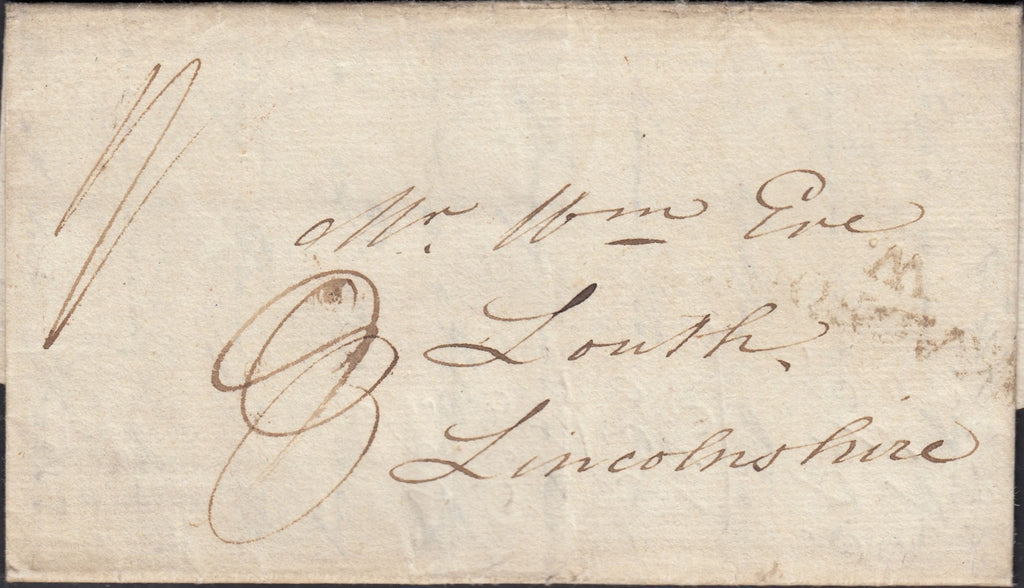 Mr. Wm Eve
Louth.
Lincolnshire